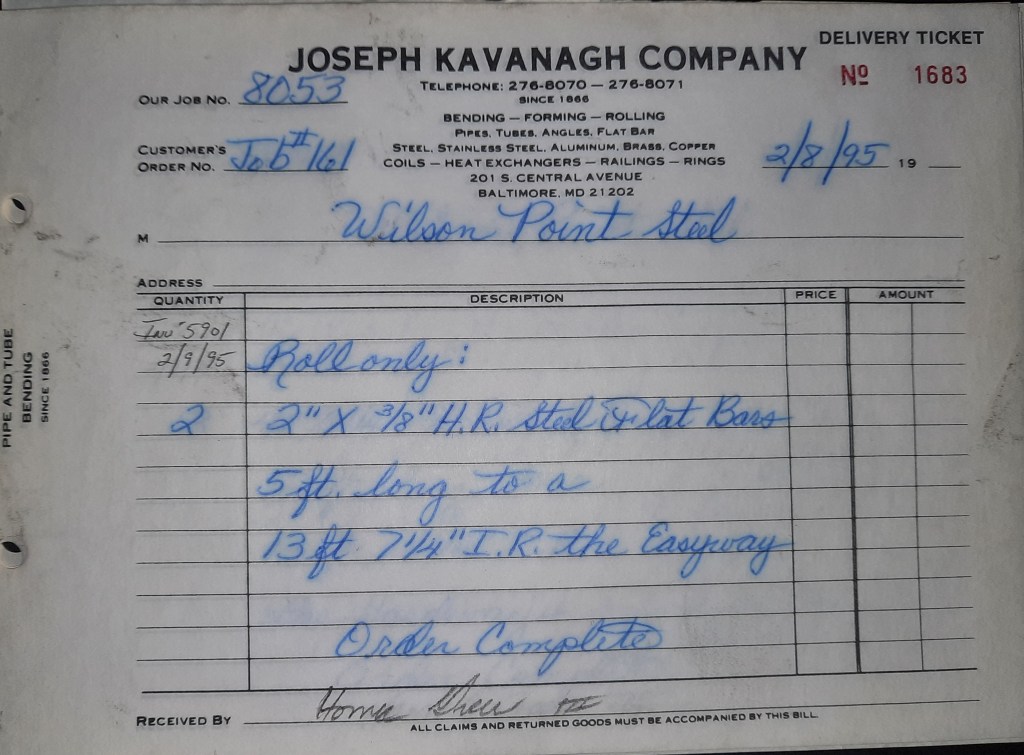 DELIVERY TICKET
JOSEPH KAVANAGH COMPANY
Nº 1683
TELEPHONE: 276-8070 — 276-8071
SINCE 1866
OUR JOB NO. 8053
BENDING — FORMING — ROLLING
PIPES, TUBES, ANGLES, FLAT BAR
CUSTOMER'S
ORDER NO. Job #161
STEEL, STAINLESS STEEL, ALUMINUM, BRASS, COPPER
COILS — HEAT EXCHANGERS — RAILINGS — RINGS
2/8/95 19
201 S. CENTRAL AVENUE
BALTIMORE, MD 21202
M Wilson Point Steel
ADDRESS
QUANTITY DESCRIPTION PRICE AMOUNT
Inv 5901
2/9/95 Roll only:
2 2" X 3/8" H.R. Steel Flat Bars
5 ft. long to a
13 ft 7 1/4" I.R. the Easyway
Order Complete
RECEIVED BY
ALL CLAIMS AND RETURNED GOODS MUST BE ACCOMPANIED BY THIS BILL
PIPE AND TUBE
BENDING
SINCE 1866